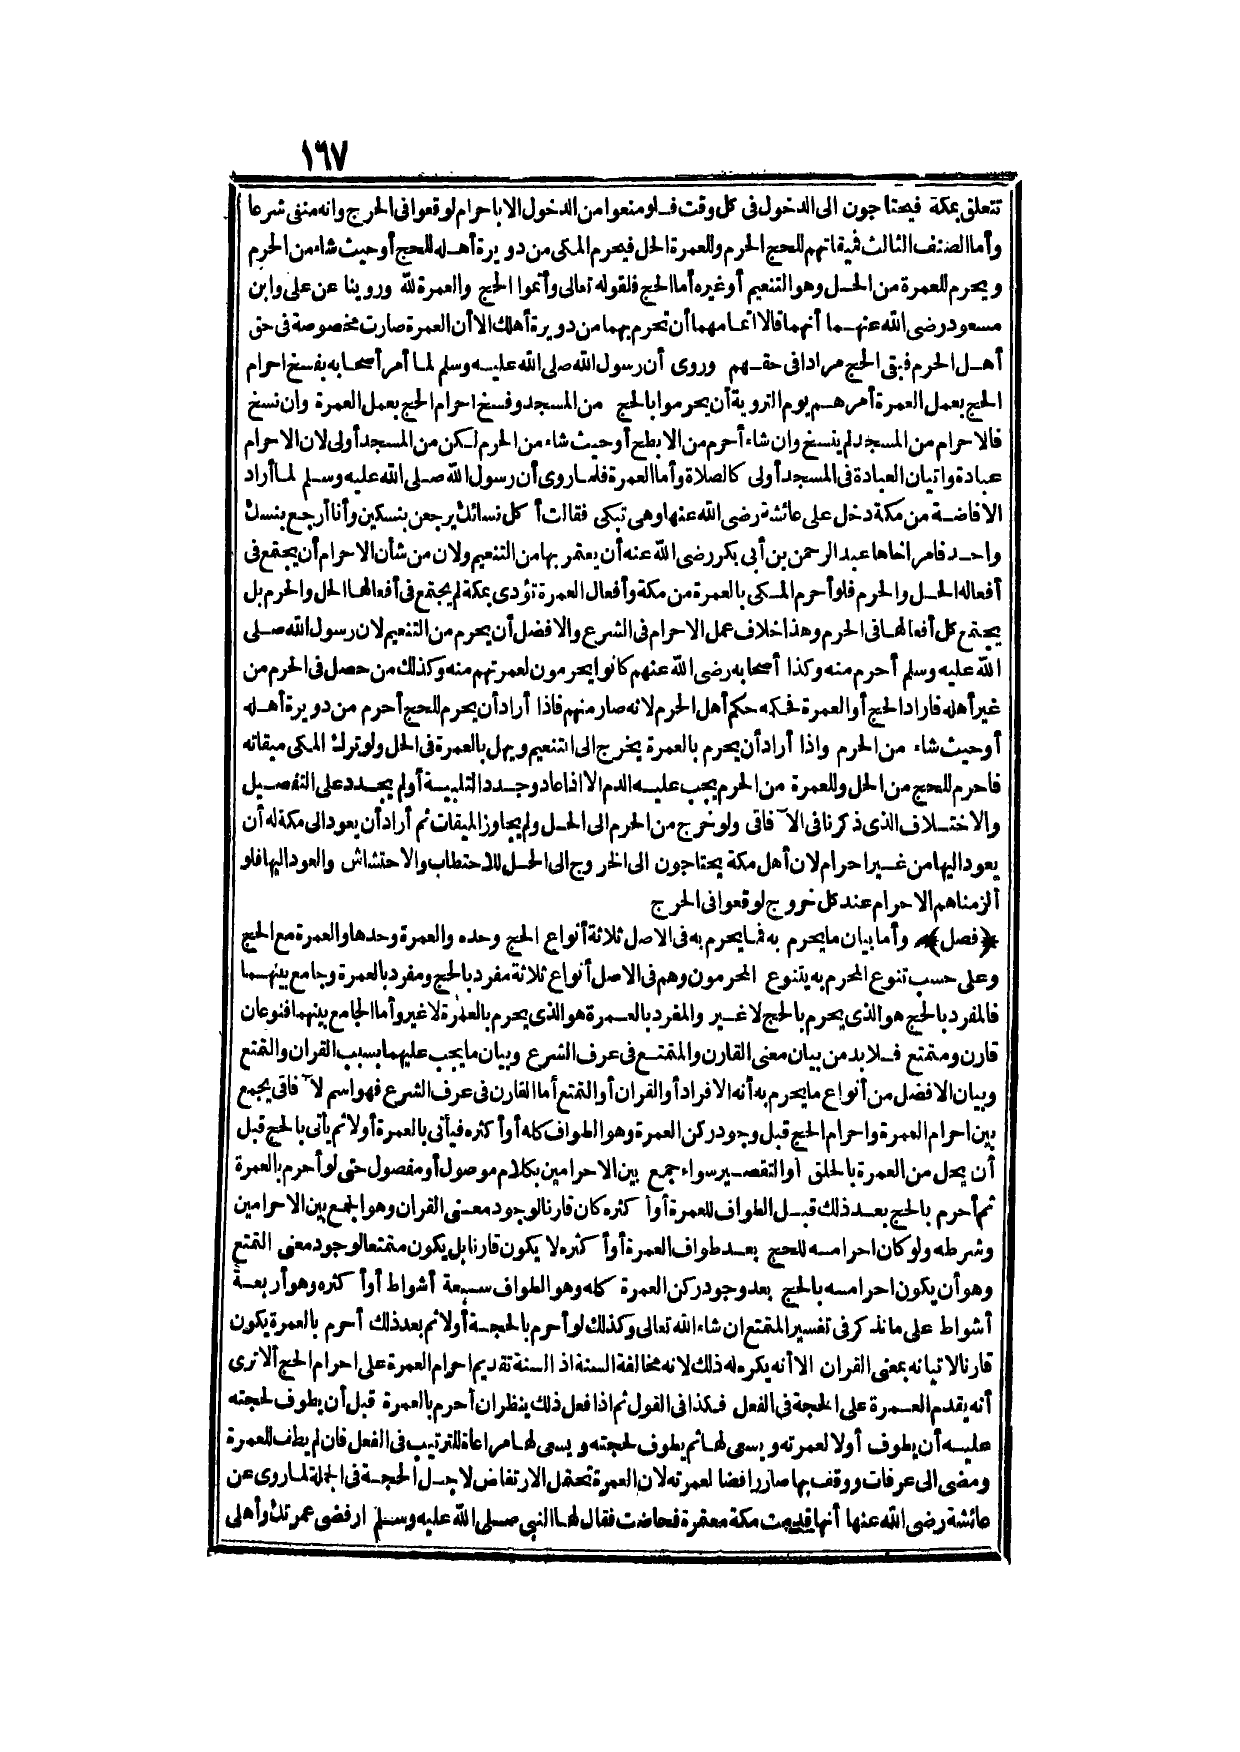 ١٦٧
تتعلق بمكة فيحتاجون الى الدخول فى كل وقت فلو منعوا من الدخول الا باحرام لوقعوا فى الحرج وانه منفى شرعا
وأما الصنف الثالث فيقاتهم للحج الحرم وللعمرة الحل فيحرم المكى من دويرة أهله للحج أو حيث شاء من الحرم
ويحرم للعمرة من الحل وهو التنعيم أو غيره أما الحج فلقوله تعالى وأتموا الحج والعمرة لله وروينا عن على وابن
مسعود رضى الله عنهما أنهما قالا اتمامهما أن تحرم بهما من دويرة أهلك الا أن العمرة صارت مخصوصة فى حق
أهل الحرم فبقى الحج مرادا فى حقهم وروى أن رسول الله صلى الله عليه وسلم لما أمر أصحابه بفسخ احرام
الحج بعمل العمرة أمرهم يوم التروية أن يحرموا بالحج من المسجد وفسخ احرام الحج بعمل العمرة وان نسخ
فالاحرام من المسجد لم ينسخ وان شاء أحرم من الابطح أو حيث شاء من الحرم لكن من المسجد أولى لان الاحرام
عبادة واتيان العبادة فى المسجد أولى كالصلاة وأما العمرة فلما روى أن رسول الله صلى الله عليه وسلم لما أراد
الافاضة من مكة دخل على عائشة رضى الله عنها وهى تبكى فقالت أ كل نسائك يرجعن بنسكين وأنا أرجع بنسك
واحد فامر اخاها عبد الرحمن بن أبى بكر رضى الله عنه أن يعتمر بها من التنعيم ولان من شأن الاحرام أن يجتمع فى
أفعاله الحل والحرم فلو أحرم المكى بالعمرة من مكة وأفعال العمرة تؤدى بمكة لم يجتمع فى أفعالها الحل والحرم بل
يجتمع كل أفعالها فى الحرم وهذا خلاف عمل الاحرام فى الشرع والافضل أن يحرم من التنعيم لان رسول الله صلى
الله عليه وسلم أحرم منه وكذا أصحابه رضى الله عنهم كانوا يحرمون لعمرتهم منه وكذلك من حصل فى الحرم من
غير أهله فاراد الحج أو العمرة فحكمه حكم أهل الحرم لانه صار منهم فاذا أراد أن يحرم للحج أحرم من دويرة أهله
أو حيث شاء من الحرم واذا أراد أن يحرم بالعمرة يخرج الى التنعيم ويهل بالعمرة فى الحل ولو ترك المكى ميقاته
فاحرم للحج من الحل وللعمرة من الحرم يجب عليه الدم الا اذا عاد وجدد التلبية أو لم يجدد على التفصيل
والاختلاف الذى ذكرنا فى الآفاقى ولو خرج من الحرم الى الحل ولم يجاوز الميقات ثم أراد أن يعود الى مكة له أن
يعود اليها من غير احرام لان أهل مكة يحتاجون الى الخروج الى الحل للاحتطاب والاحتشاش والعود اليها فلو
ألزمناهم الاحرام عند كل خروج لوقعوا فى الحرج
﴿فصل﴾ وأما بيان ما يحرم به فما يحرم به فى الاصل ثلاثة أنواع الحج وحده والعمرة وحدها والعمرة مع الحج
وعلى حسب تنوع المحرم به يتنوع المحرمون وهم فى الاصل أنواع ثلاثة مفرد بالحج ومفرد بالعمرة وجامع بينهما
فالمفرد بالحج هو الذى يحرم بالحج لا غير والمفرد بالعمرة هو الذى يحرم بالعمرة لا غير وأما الجامع بينهما فنوعان
قارن ومتمتع فلا بد من بيان معنى القارن والمتمتع فى عرف الشرع وبيان ما يجب عليهما بسبب القران والتمتع
وبيان الافضل من أنواع ما يحرم به أنه الافراد أو القران أو التمتع أما القارن فى عرف الشرع فهو اسم لآفاقى يجمع
بين احرام العمرة واحرام الحج قبل وجود ركن العمرة وهو الطواف كله أو أكثره فيأتى بالعمرة أولا ثم يأتى بالحج قبل
أن يحل من العمرة بالحلق أو التقصير سواء جمع بين الاحرامين بكلام موصول أو مفصول حتى لو أحرم بالعمرة
ثم أحرم بالحج بعد ذلك قبل الطواف للعمرة أو أكثره كان قارنا لوجود معنى القران وهو الجمع بين الاحرامين
وشرطه ولو كان احرامه للحج بعد طواف العمرة أو أكثره لا يكون قارنا بل يكون متمتعا لوجود معنى التمتع
وهو أن يكون احرامه بالحج بعد وجود ركن العمرة كله وهو الطواف سبعة أشواط أو أكثره وهو أربعة
أشواط على ما نذكر فى تفسير المتمتع ان شاء الله تعالى وكذلك لو أحرم بالحجة أولا ثم بعد ذلك أحرم بالعمرة يكون
قارنا لاتيانه بمعنى القران الا أنه يكره له ذلك لانه مخالفة السنة اذ السنة تقديم احرام العمرة على احرام الحج ألا ترى
أنه يقدم العمرة على الحجة فى الفعل فكذا فى القول ثم اذا فعل ذلك ينظر ان أحرم بالعمرة قبل أن يطوف لحجته
عليه أن يطوف أولا لعمرته ويسعى لها ثم يطوف لحجته ويسعى لها مراعاة للترتيب فى الفعل فان لم يطف للعمرة
ومضى الى عرفات ووقف بها صار رافضا لعمرته لان العمرة تحتمل الارتفاض لاجل الحجة فى الجملة لما روى عن
عائشة رضى الله عنها أنها قدمت مكة معتمرة فحاضت فقال لها النبى صلى الله عليه وسلم ارفضى عمرتك وأهلى